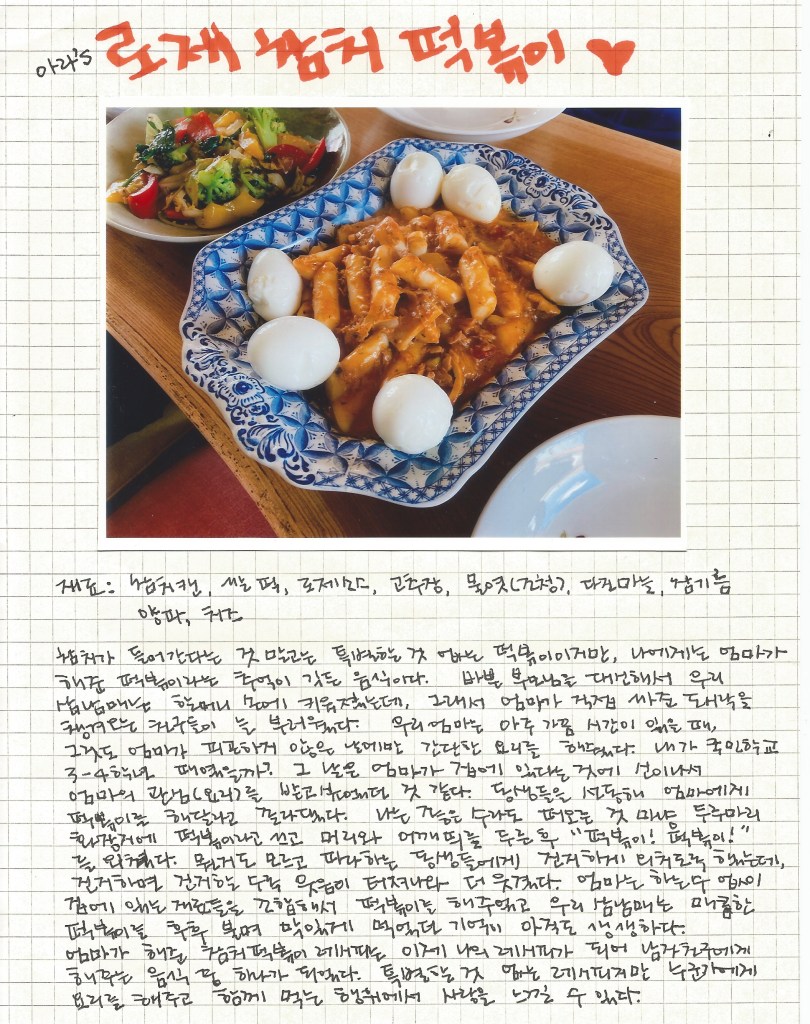 아라's 로제 참치 떡볶이 ♥
재료: 참치캔, 쌀떡, 로제소스, 고추장, 물엿(조청), 다진마늘, 참기름
양파, 치즈
참치가 들어간다는 것 말고는 특별할 것 없는 떡볶이이지만, 나에게는 엄마가
해준 떡볶이라는 추억이 깃든 음식이다. 바쁜 부모님를 대신해서 우리
삼남매는 할머니 손에 키워졌는데, 그래서 엄마가 직접 싸준 도시락을
챙겨오는 친구들이 늘 부러웠다. 우리엄마는 아주 가끔 시간이 있을 때,
그것도 엄마가 피곤하지 않은 날에만 간단한 요리를 해주었다. 내가 국민학교
3-4학년 때였을까? 그 날은 엄마가 집에 있다는 것에 신이나서
엄마의 관심(요리)를 받고싶었던 것 같다. 동생들을 선동해 엄마에게
떡볶이를 해달라고 졸라댔다. 나는 같은 수라도 떠오른 것 마냥 두루마리
화장지에 떡볶이라고 쓰고 머리와 어깨띠를 두른 후 "떡볶이! 떡볶이!"
를 외쳤다. 뭔지도 모르고 따라하는 동생들에게 진지하게 외치도록 했는데,
진지하면 진지할수록 웃음이 터져나와 더 웃겼다. 엄마는 하는수 없이
집에 있는 재료들을 조합해서 떡볶이를 해주었고 우리 삼남매는 매콤한
떡볶이를 후후 불며 맛있게 먹었던 기억이 아직도 생생하다.
엄마가 해준 참치떡볶이 레시피는 이제 나의 레시피가 되어 남자친구에게
해주는 음식 중 하나가 되었다. 특별할 것 없는 레시피지만 누군가에게
요리를 해주고 함께 먹는 행위에서 사랑을 느낄 수 있다.